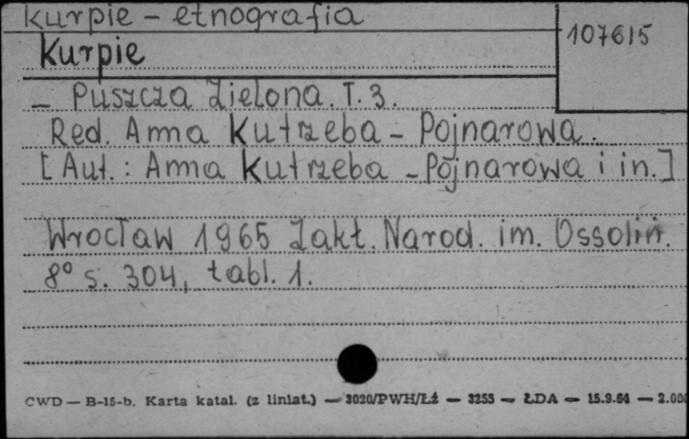 Kurpie - etnografia
107615
Kurpie
- Puszcza Zielona. T. 3.
Red. Anna Kutrzeba - Pojnarowa.
[Aut.: Anna Kutrzeba - Pojnarowa i in.]
Wrocław 1965 Zakł. Narod. im. Ossoliń.
8° s. 304, tabl. 1.
CWD — B-15-b. Karta katal. (z liniat.) — 3020/PWH/Łź — 3255 — ŁDA — 15.9.64 — 2.000